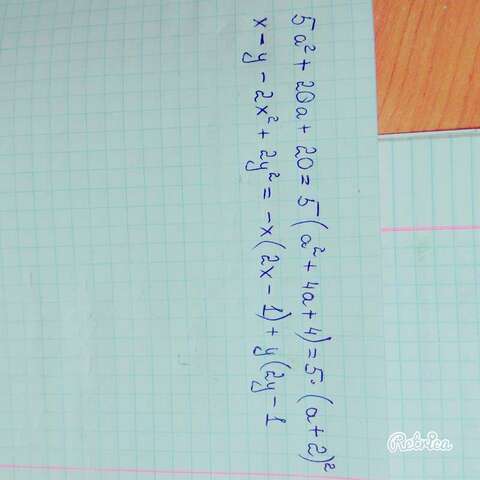 5a² + 20a + 20 = 5(a² + 4a + 4) = 5·(a + 2)²
x - y - 2x² + 2y² = -x(2x - 1) + y(2y - 1
Retrica